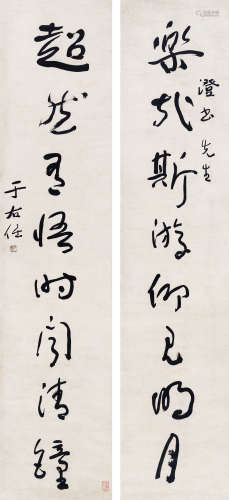 樂哉斯游仰見明月
澄書先生
超然有悟時聞清鐘
于右任